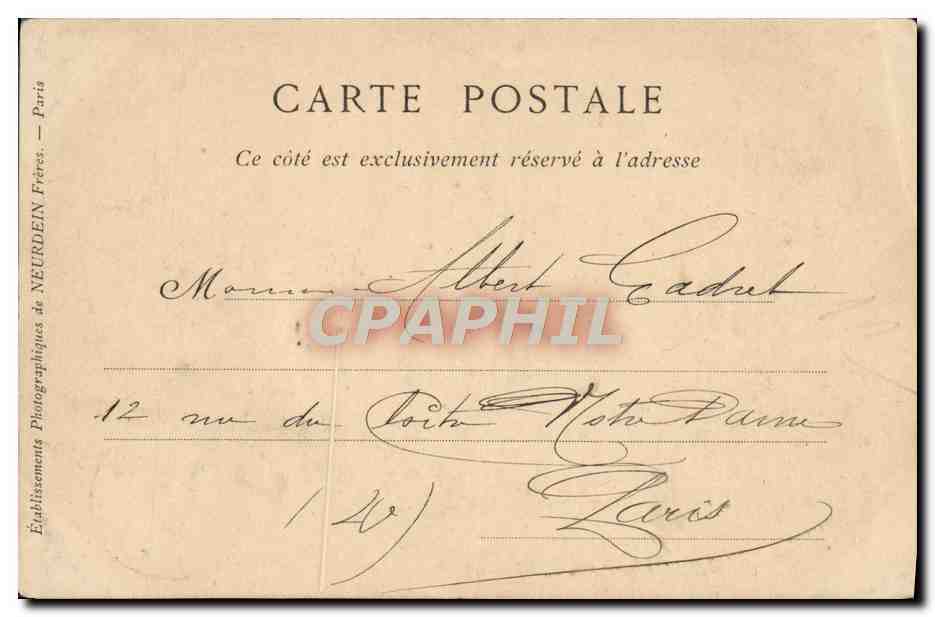 CARTE POSTALE
Ce côté est exclusivement réservé à l'adresse
Albert Cadret
CPAPHIL
12 rue du Notre Dame
Paris
Établissements Photographiques de NEURDEIN Frères. — Paris